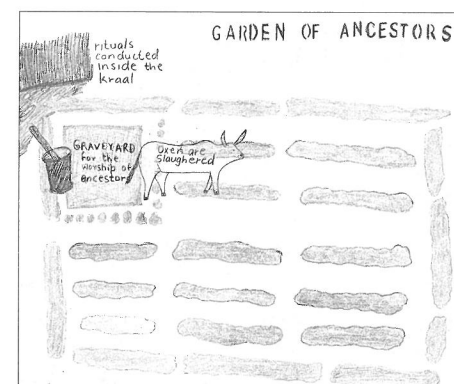 GARDEN OF ANCESTORS
rituals
conducted
inside the
kraal
GRAVEYARD
for the
worship of
ancestors
Oxen are
Slaughered